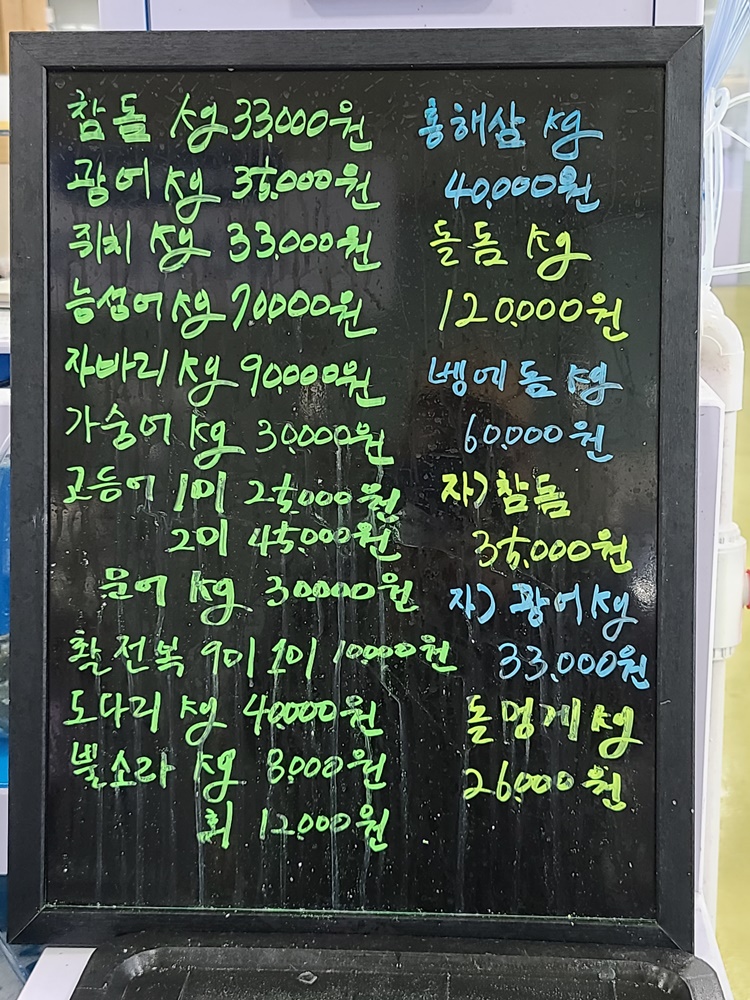 참돔 kg 33,000원
광어 kg 35,000원
쥐치 kg 33,000원
능성어 kg 70,000원
자바리 kg 90,000원
가숭어 kg 30,000원
고등어 1미 25,000원
2미 45,000원
문어 kg 30,000원
활전복 9미 10,000원
도다리 kg 40,000원
뿔소라 kg 8,000원
회 12,000원
홍해삼 kg
40,000원
돌돔 kg
120,000원
벵에돔 kg
60,000원
자)참돔
35,000원
자)광어 kg
33,000원
돌멍게 kg
26,000원